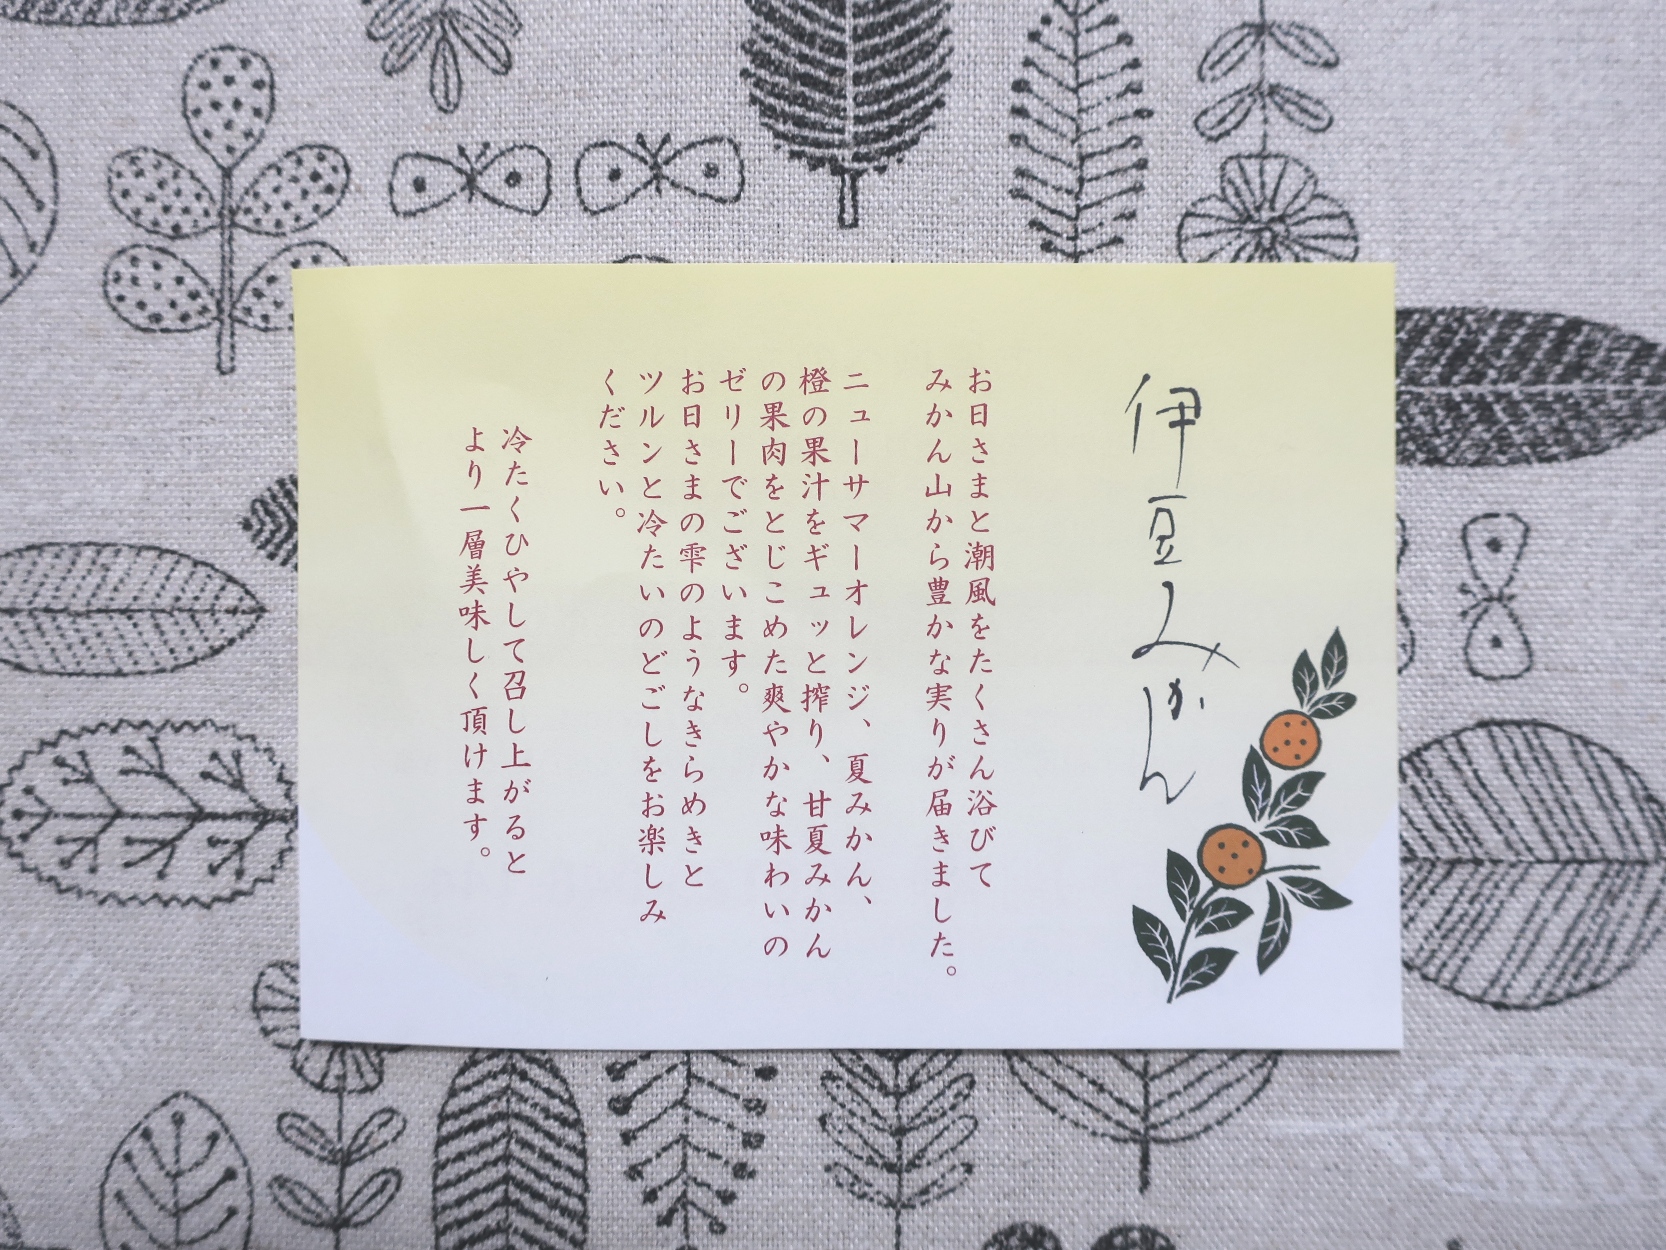 伊豆みかん
お日さまと潮風をたくさん浴びて
みかん山から豊かな実りが届きました。
ニューサマーオレンジ、夏みかん、
橙の果汁をギュッと搾り、甘夏みかん
の果肉をとじこめた爽やかな味わいの
ゼリーでございます。
お日さまの雫のようなきらめきと
ツルンと冷たいのどごしをお楽しみ
ください。
冷たくひやして召し上がると
より一層美味しく頂けます。